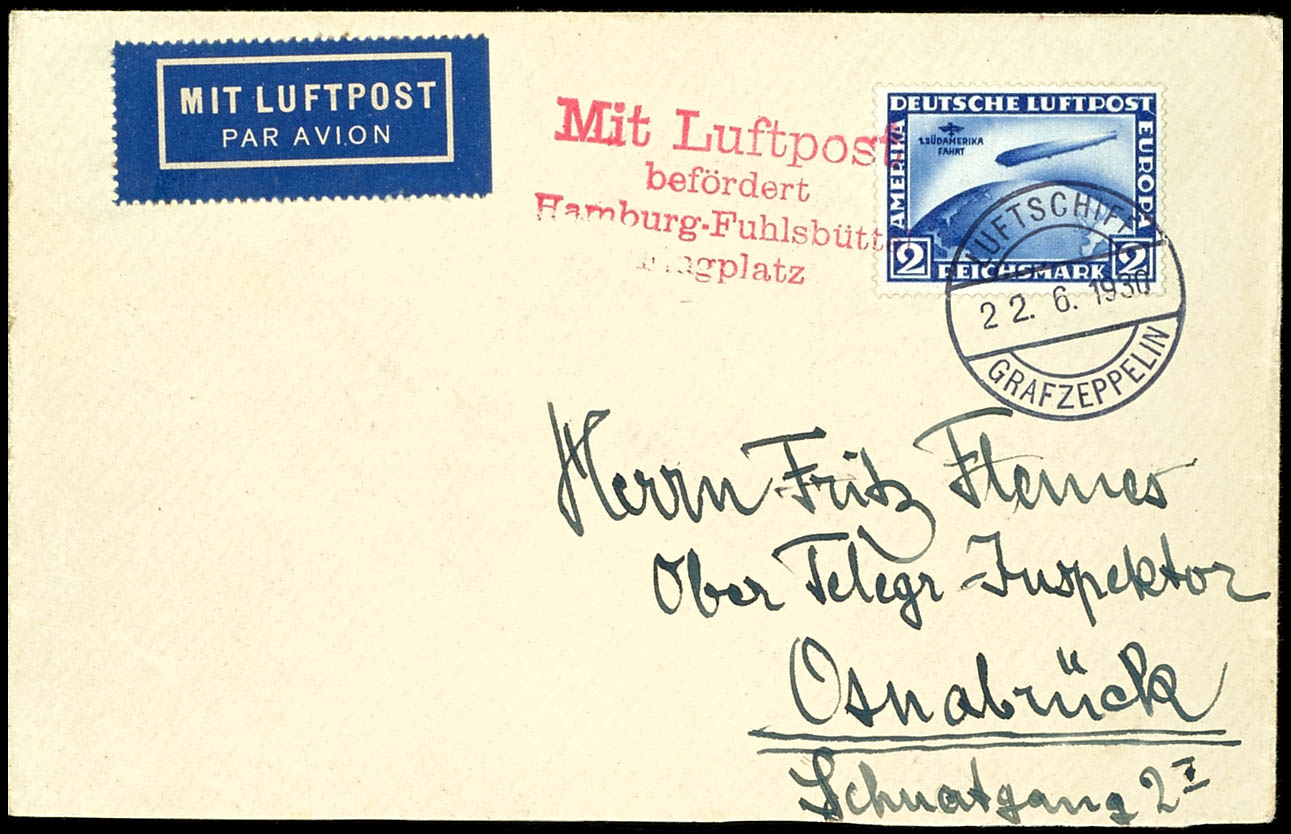 MIT LUFTPOST
PAR AVION
Mit Luftpost
befördert
Hamburg-Fuhlsbüttel
Flugplatz
DEUTSCHE LUFTPOST
AMERIKA
EUROPA
1. SÜDAMERIKA
FAHRT
2 REICHSMARK 2
LUFTSCHIFF
22.6.1930
GRAF ZEPPELIN
Herrn Fritz
Ober Telegr-Inspektor
Osnabrück
Schnatgang 2 I